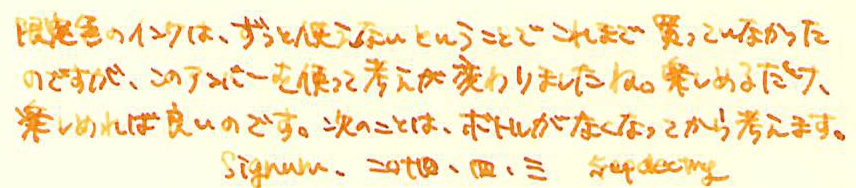 限定色のインクは、ずっと使えないということでこれまで買っていなかった
のですが、このアンバーを使って考えが変わりましたね。楽しめるだけ、
楽しめれば良いのです。次のことは、ボトルがなくなってから考えます。
Signum、二〇十四、四、三